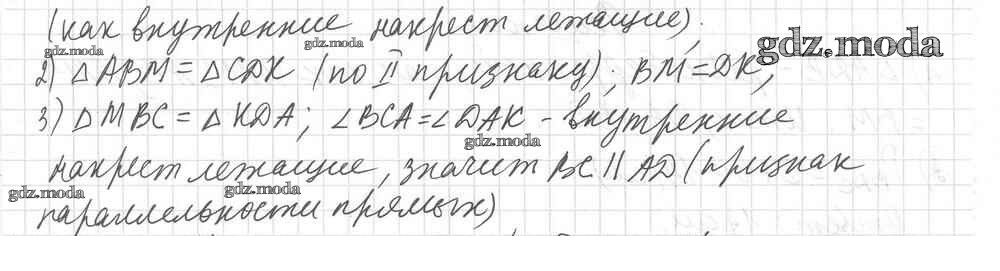 (как внутренние накрест лежащие).
gdz.moda
gdz.moda
gdz.moda
2) △ABM = △CDK (по II признаку); BM = DK;
3) △MBC = △KDA; ∠BCA = ∠DAK - внутренние
gdz.moda
накрест лежащие, значит BC || AD (признак
gdz.moda
gdz.moda
параллельности прямых)